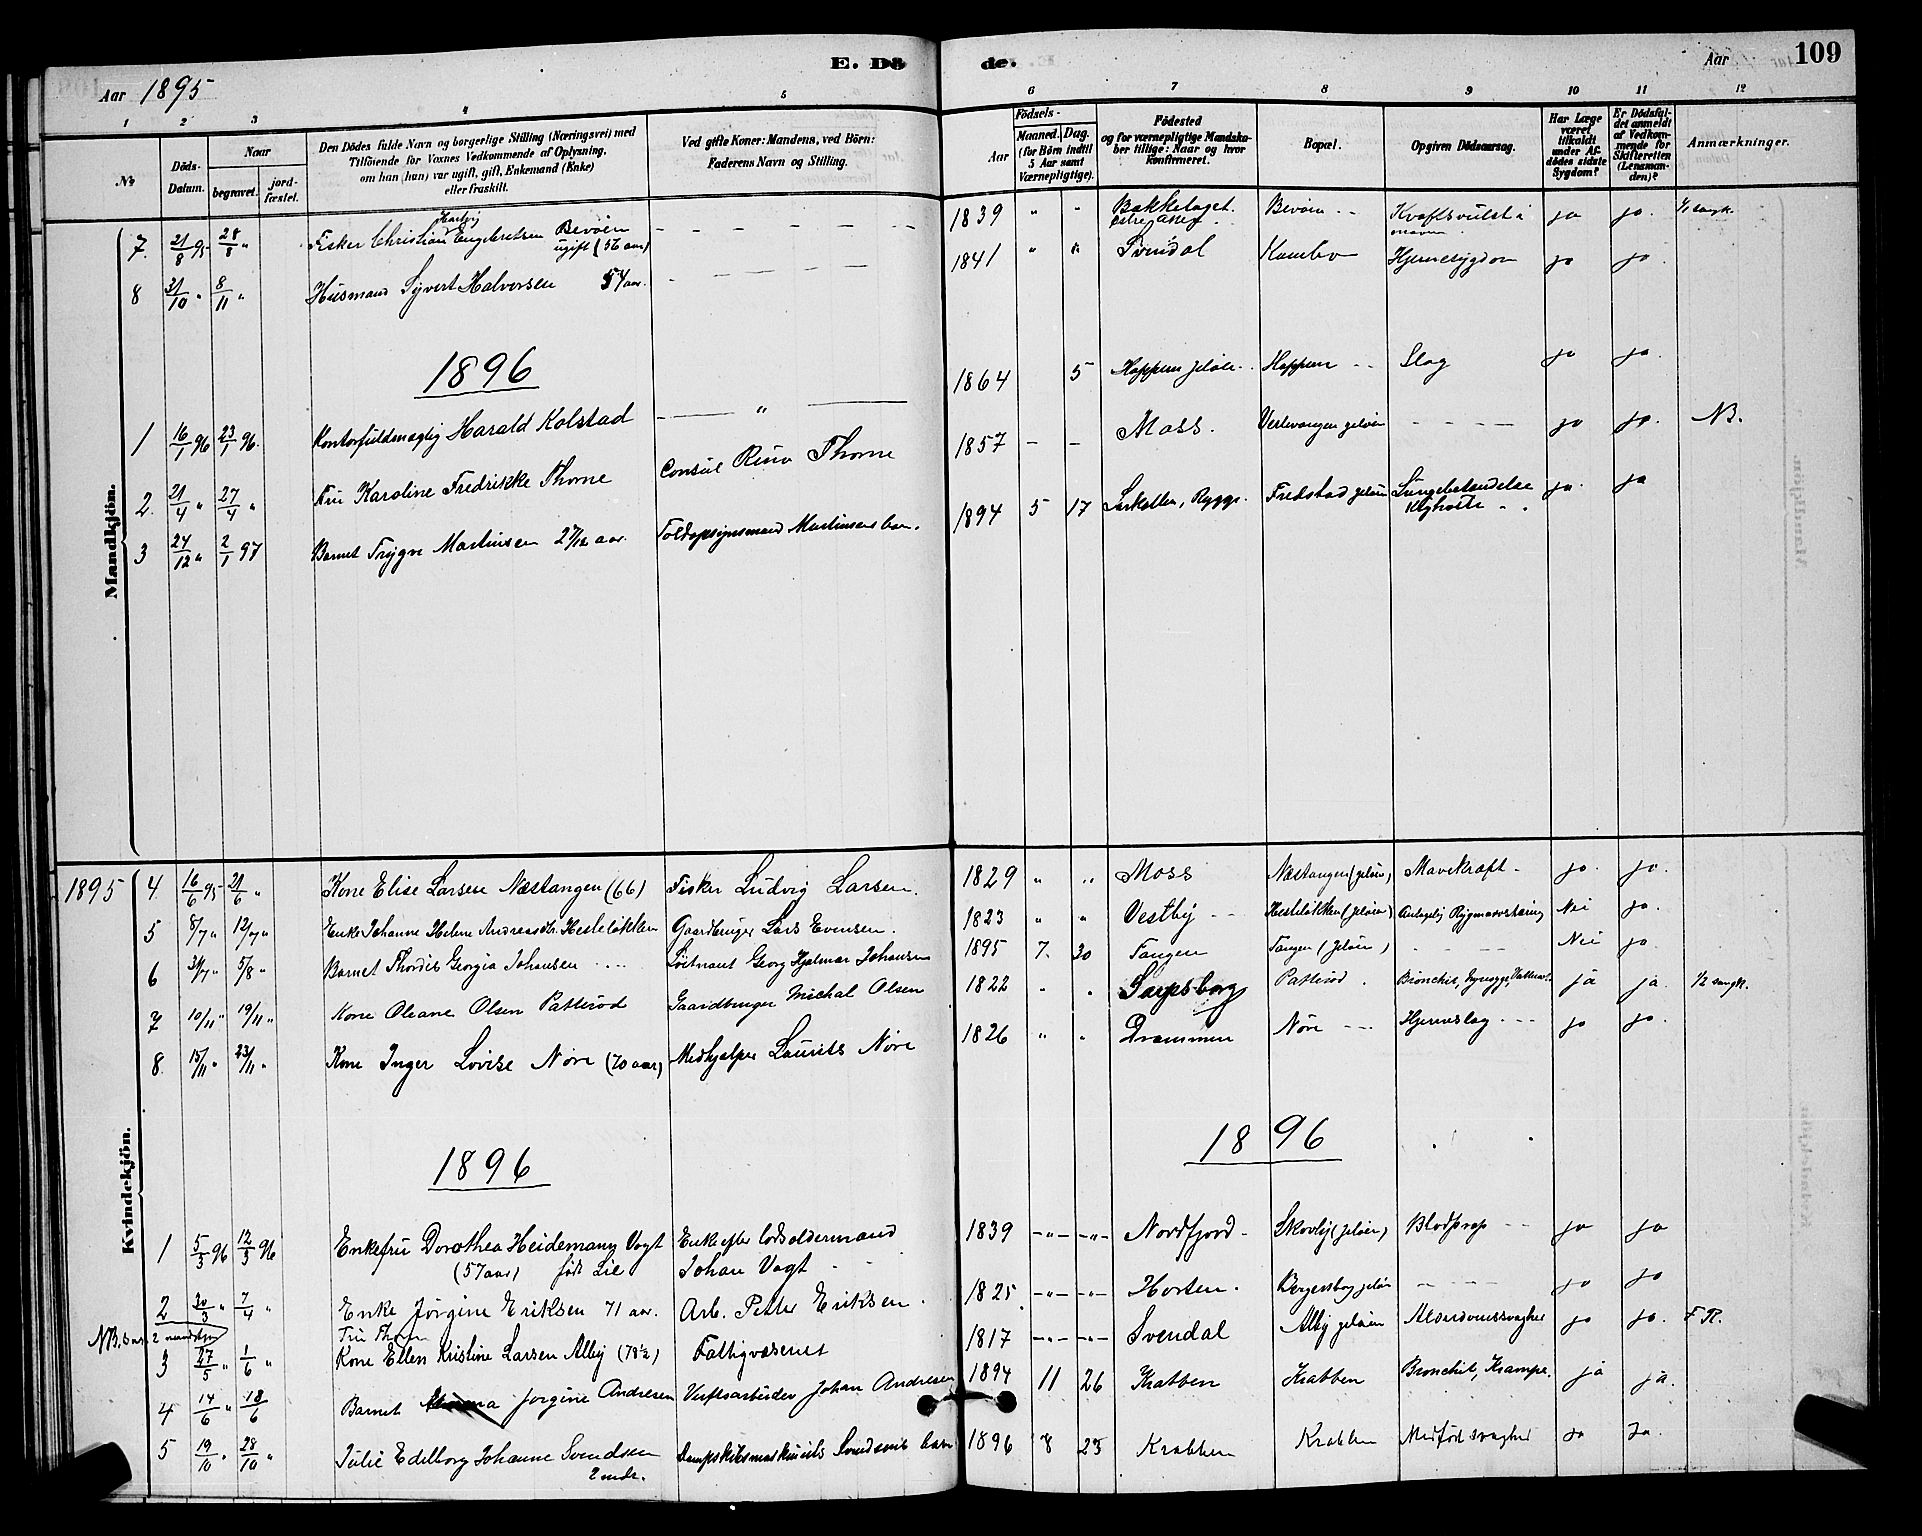 E. Dö
de.
Aar 1895
Aar
109
1 2 3 4 5 6 7 8 9 10 11 12
No
Döds-Datum.
Naar
begravet. jord-fæstet.
Den Dödes fulde Navn og borgerlige Stilling (Næringsvei) med
Tilföiende for Voxnes Vedkommende af Oplysning,
om han (hun) var ugift, gift, Enkemand (Enke)
eller fraskilt.
Ved gifte Koner: Mandens, ved Börn:
Faderens Navn og Stilling.
Födsels-
Aar
Maaned. Dag.
(for Börn indtil
5 Aar samt
Værnepligtige).
Födested
og for værnepligtige Mandskaber tillige: Naar og hvor
konfirmeret.
Bopæl.
Opgiven Dödsaarsag.
Har Læge
været
tilkaldt
under Afdödes sidste
Sygdom?
Er Dödsfaldet anmeldt
af Vedkommende for
Skifteretten
(Lensmanden)?
Anmærkninger.
Mandkjön.
7. 21/8 95 28/8 " Fisker Christian Hartvig Engebretsen Bevöen ugift (56 aar) 1839 " " Bakkelaget Bevöen Kræftsvulst i maven ja ja.
8 31/10 " 8/11 " Husmand Syvert Halvorsen 54 aar. 1841 " " Svendal Kambo Hjernesygdom ja ja.
1896
1 16/1 96 23/1 96. Kontorfuldmægtig Harald Kolstad " 1864 5 Hoppern Jelöen Hoppern Slag ja ja.
2. 21/4 " 27/4 " Fru Karoline Fredrikke Thorne Consul Thorne 1857 - - Moss. Jelöen ja ja. NB.
3 24/12 " 2/1 97 Barnet Trygve Martinsen 2 7/12 aar. Toldopsynsmand Martinsens barn. 1894 5 17 Larkollen, Rygge. Fredstad Jelöen Lungebetændelse Kighoste ja. ja
Kvindekjön.
1895 4. 16/6 95 21/6 " Kone Elise Larsen Næstangen (66) Fisker Ludvig Larsen. 1829 " " Moss Næstangen (Jelöen) Mavekræft ja. ja.
5 8/7 " 12/7 " Enke Johanne Helene Andreasdtr. Hestelökken Gaardbruger Lars Evensen. 1823 " " Vestby Hestelökken (Jelöen) Antagelig Rygmarvstæring Nei ja.
6 31/7 " 5/8 " Barnet Thordis Georgia Johansen Löitnant Georg Hjalmar Johansen 1895 7. 30 Tangen Tangen (Jelöen) Nei ja
7 10/11 " 19/11 " Kone Oleane Olsen Patteröd Gaardbruger Michal Olsen 1822 " " Sarpsborg Patteröd Bronchit, ja ja.
8. 15/11 " 23/11 " Kone Inger Lovise Nöre (70 aar) Medhjælper Laurits Nöre 1826 " " Drammen Nöre Hjerneslag ja ja.
1896
1896
1 5/3 96 12/3 96 Enkefru Dorothea Heidemann Vogt (57 aar) född Lie Enke efter lodsoldermand Johan Vogt 1839 Nordfjord Skovly (Jelöen) Blodprop ja ja
2 30/3 " 7/4 " Enke Jörgine Eriksen 71 aar. Arb. Petter Eriksen. 1825 Horten. Jelöen ja ja
NB. 2 Fru Thorne
3 27/5 " 1/6 " Kone Ellen Kristine Larsen Alby (78½) Fattigvæsenet 1817 Svendal Alby Jelöen Alderdomssvaghed ja ja.
4 14/6 " 18/6 Barnet Jorgine Andresen Verftsarbeider Johan Andresen 1894 11 26 Krabben Krabben Bronchit, Krampe. ja ja.
5 19/10 " 28/10 " Julie Edelborg Johanne Svendsen 2 mdr. Svendsens barn 1896 8 23 Krabben Krabben Medfödt svaghed ja Ja.